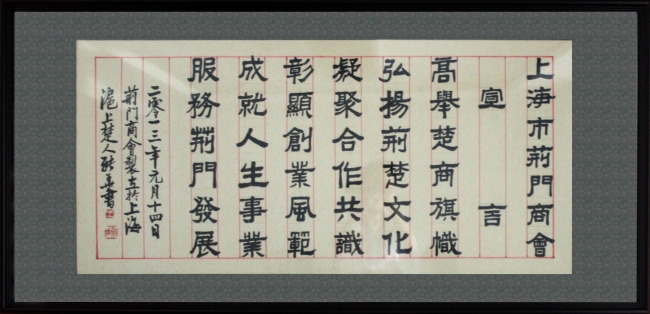 上海市荊門商會
宣言
高舉楚商旗幟
弘揚荊楚文化
凝聚合作共識
彰顯創業風範
成就人生事業
服務荊門發展
二零一三年元月十四日
荊門商會製立於上海
滬上楚人
書